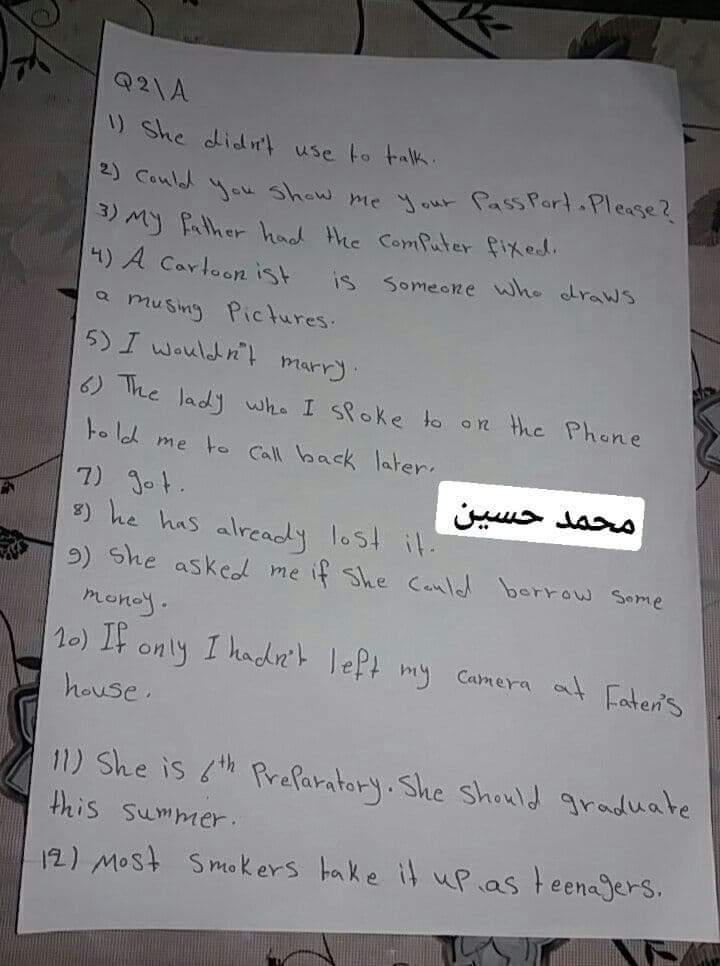 Q2\A
1) She didn't use to talk.
2) Could you show me your Passport. Please?
3) My father had the computer fixed.
4) A Cartoonist is someone who draws
a musing Pictures.
5) I wouldn't marry.
6) The lady who I spoke to on the Phone
told me to call back later.
7) got.
محمد حسين
8) he has already lost it.
9) She asked me if She Could borrow some
money.
10) If only I hadn't left my camera at Faten's
house.
11) She is 6th Preparatory. She Should graduate
this summer.
12) Most smokers take it up as teenagers.